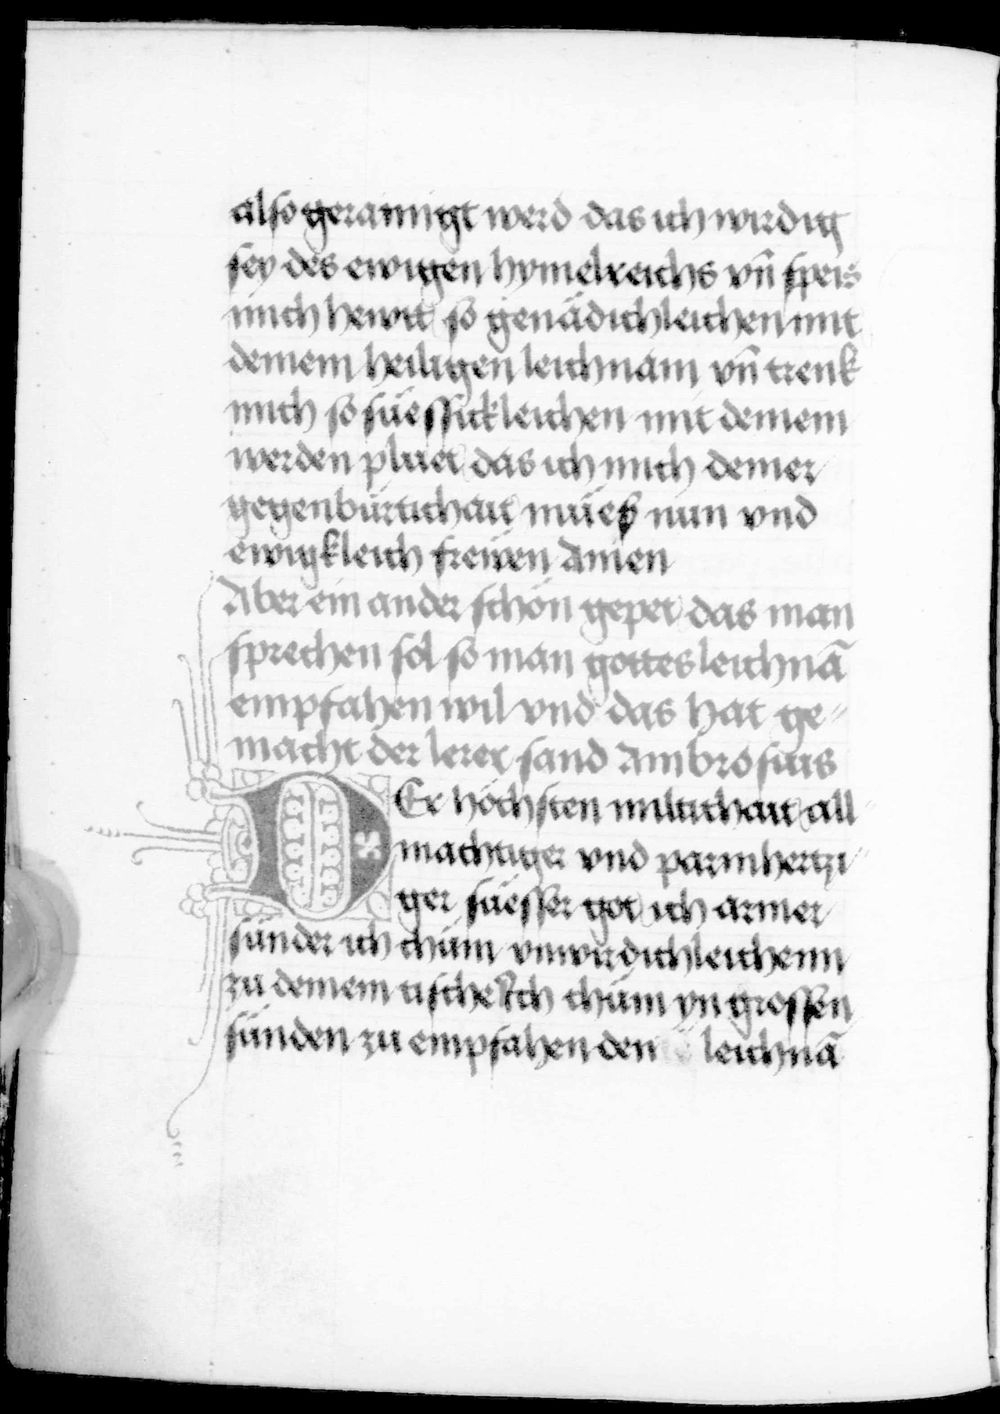 also gerainigt werd das ich wirdig
sey des ewigen hymelreichs vn̄ speis
mich hewt so genädichleichen mit
deinem heiligen leichnam vn̄ trenk
mich so süessickleichen mit deinem
werden pluet das ich mich deiner
gegenbürtichait müeß nun vnd
ewigkleich freẅen Amen
Aber ein ander schön gepet das man
sprechen sol so man gottes leichnā
empfahen wil vnd das hat ge⸗
macht der lerer sand Ambrosius
DEr höchsten miltichait all⸗
mächtiger vnd parmhertzi⸗
ger süesser got ich armer
sünder ich chüm vnwirdichleichenn
zu deinem tische Ich chüm yn grossen
sünden zu empfahen den leichnā